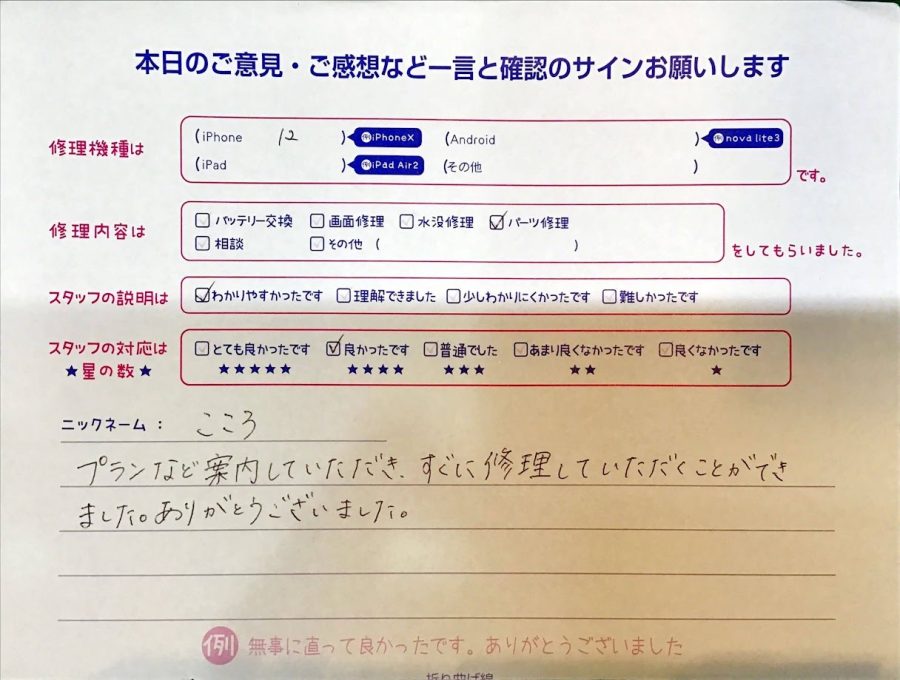 本日のご意見・ご感想など一言と確認のサインお願いします
修理機種は (iPhone 12 ) 例iPhoneX (Android ) 例nova lite3
(iPad ) 例iPad Air2 (その他 ) です。
修理内容は □バッテリー交換 □画面修理 □水没修理 ☑パーツ修理
□相談 □その他 ( ) をしてもらいました。
スタッフの説明は ☑わかりやすかったです □理解できました □少しわかりにくかったです □難しかったです
スタッフの対応は □とても良かったです ☑良かったです □普通でした □あまり良くなかったです □良くなかったです
★星の数★ ★★★★★ ★★★★ ★★★ ★★ ★
ニックネーム: こころ
プランなど案内していただき、すぐに修理していただくことができ
ました。ありがとうございました。
例 無事に直って良かったです。ありがとうございました
折り曲げ線